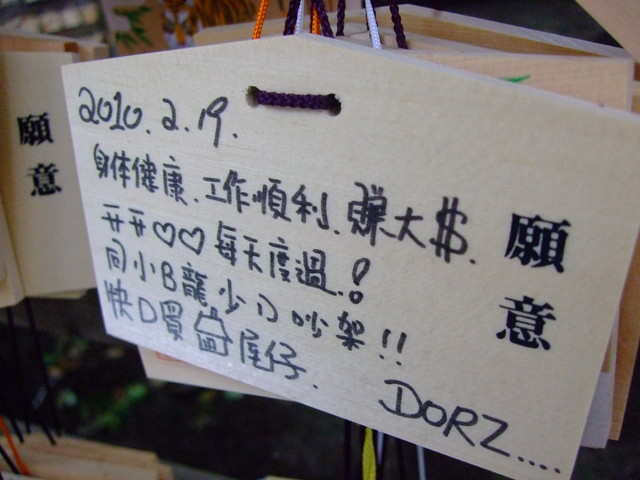 2010.2.19.
身体健康、工作順利、賺大$.
开开♡♡每天度過!
同小B龍少D吵架!!
快D買間屋仔.
DORZ....
願意
願意